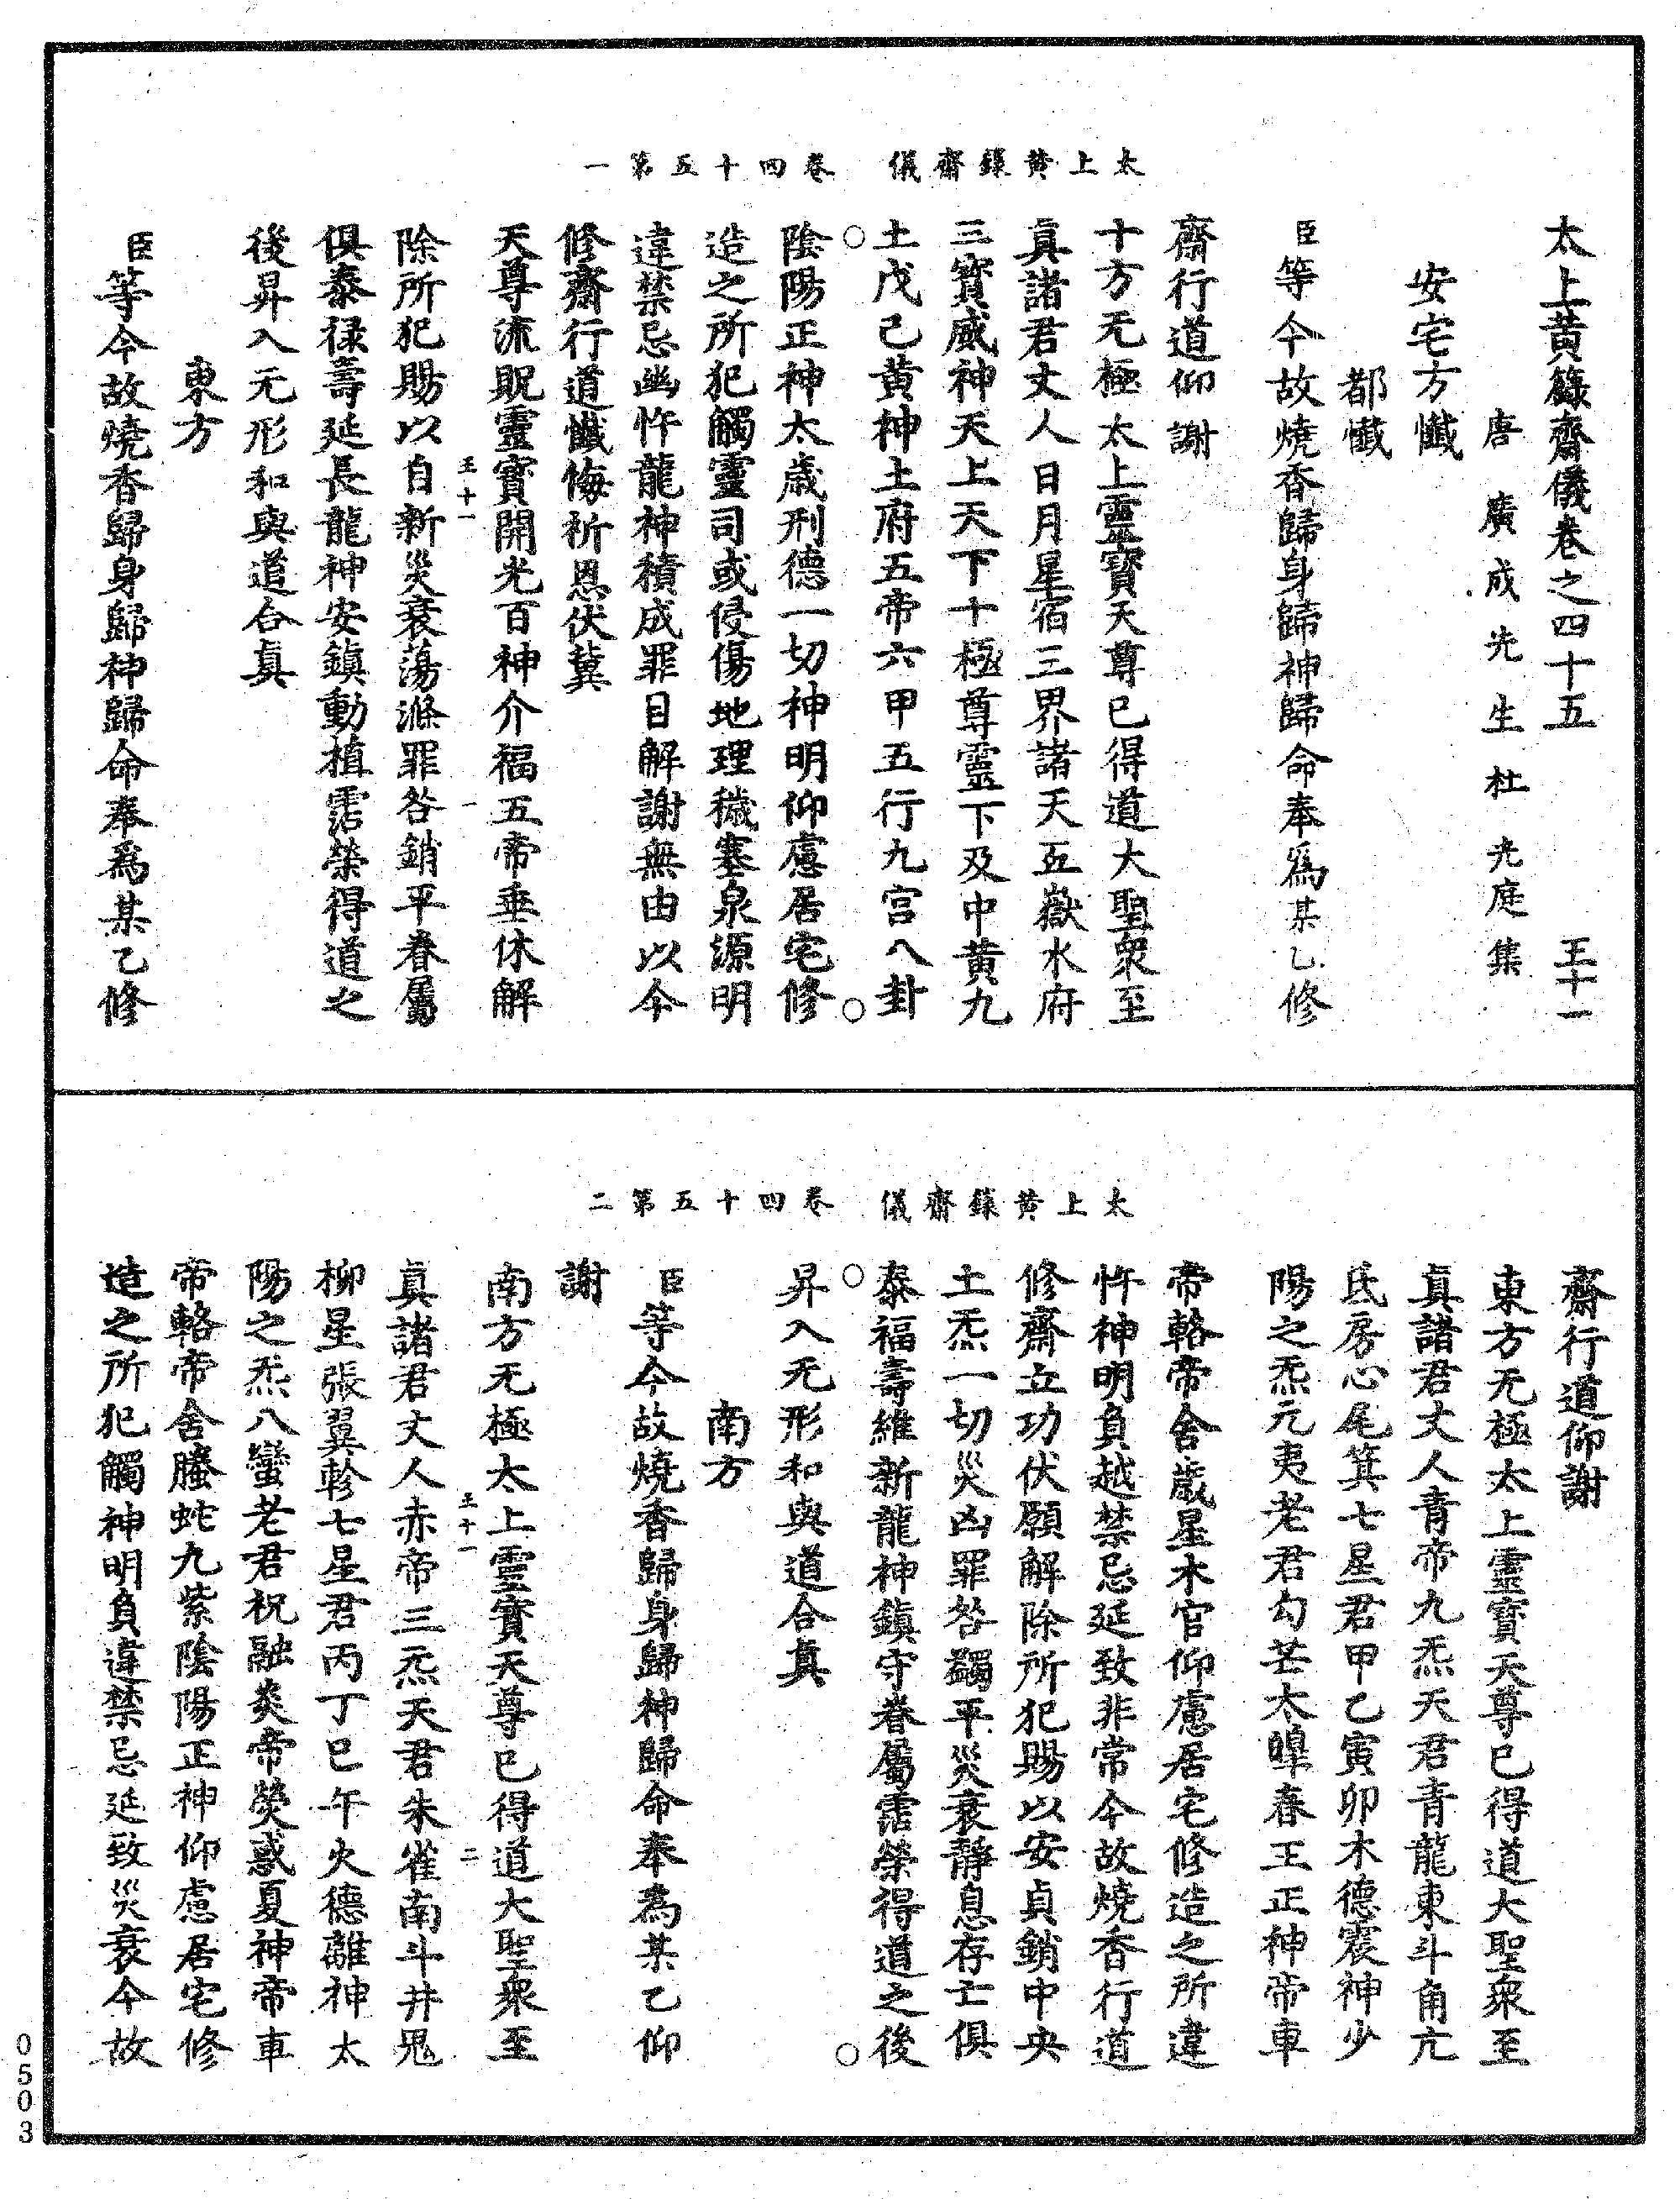 太上黃籙齋儀　卷四十五第一
太上黃籙齋儀卷之四十五　王十一
唐廣成先生杜光庭集
安宅方懺
都懺
臣等今故燒香歸身歸神歸命奉爲某乙修
齋行道仰謝
十方无極太上靈寶天尊已得道大聖衆至
真諸君丈人日月星宿三界諸天五嶽水府
三寶威神天上天下十極尊靈下及中黃九
土戊己黃神土府五帝六甲五行九宮八卦
陰陽正神太歲刑德一切神明仰慮居宅修
造之所犯觸靈司或侵傷地理穢塞泉源明
違禁忌幽忤龍神積成罪目解謝無由以今
修齋行道懺悔祈恩伏冀
天尊流貺靈寶開光百神介福五帝垂休解
王十一　一
除所犯賜以自新災衰蕩滌罪咎銷平眷屬
俱泰祿壽延長龍神安鎮動植霑榮得道之
後昇入无形和與道合真
東方
臣等今故燒香歸身歸神歸命奉爲某乙修
太上黃籙齋儀　卷四十五第二
齋行道仰謝
東方无極太上靈寶天尊已得道大聖衆至
真諸君丈人青帝九炁天君青龍東斗角亢
氐房心尾箕七星君甲乙寅卯木德震神少
陽之炁元夷老君勾芒太皥春王正神帝車
帝輅帝舍歲星木官仰慮居宅修造之所違
忤神明負越禁忌延致非常今故燒香行道
修齋立功伏願解除所犯賜以安貞銷中央
土炁一切災凶罪咎蠲平災衰靜息存亡俱
泰福壽維新龍神鎮守眷屬霑榮得道之後
昇入无形和與道合真
南方
臣等今故燒香歸身歸神歸命奉爲某乙仰
謝
南方无極太上靈寶天尊已得道大聖衆至
王十一　二
真諸君丈人赤帝三炁天君朱雀南斗井鬼
柳星張翼軫七星君丙丁巳午火德離神太
陽之炁八蠻老君祝融炎帝熒惑夏神帝車
帝輅帝舍螣蛇九紫陰陽正神仰慮居宅修
造之所犯觸神明負違禁忌延致災衰今故
0503